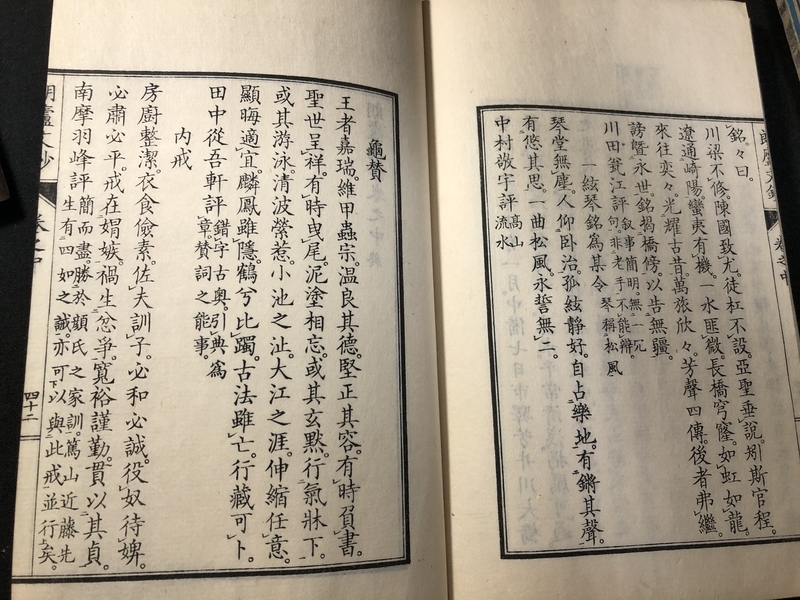 朗廬文鈔 卷之中
銘々曰。
川梁不修。陳國致尤。徒杠不設。亞聖垂説。矧斯官程。
遼通崎陽。蠻夷有機。一水匪微。長橋穹窿。如虹如龍。
來往奕々。光耀古昔。萬旅欣々。芳聲四傳。後者弗繼。
謗曁永世。銘揭橋傍。以告無疆。
川田甕江評 叙事簡明。無一冗句。非老手不能辦。
一絃琴銘爲某令 琴稱松風
琴堂無塵。人仰卧治。孤絃静好。自占樂地。有鏘其聲。
有悠其思。一曲松風。永誓無二。
中村敬宇評 高山流水
龜贊
王者嘉瑞。維甲蟲宗。温良其德。堅正其容。有時負書。
聖世呈祥。有時曳尾。泥塗相忘。或其玄默。行氣牀下。
或其游泳。清波縈惹。小池之沚。大江之涯。伸縮任意。
顯晦適宜。麟鳳雖隱。鶴兮比躅。古法雖亡。行藏可卜。
田中從吾軒評 錯字古奥。引典爲章。贊詞之能事。
内戒
房廚整潔。衣食儉素。佐夫訓子。必和必誠。役奴待婢。
必肅必平。戒在媢嫉。禍生忿爭。寬裕謹勤。貫以其貞。
南摩羽峰評 簡而盡。勝於顔氏之家訓。篤山近藤先生有四如之誡。亦可以與此戒並行矣。
朗廬文鈔 卷之中 四十二